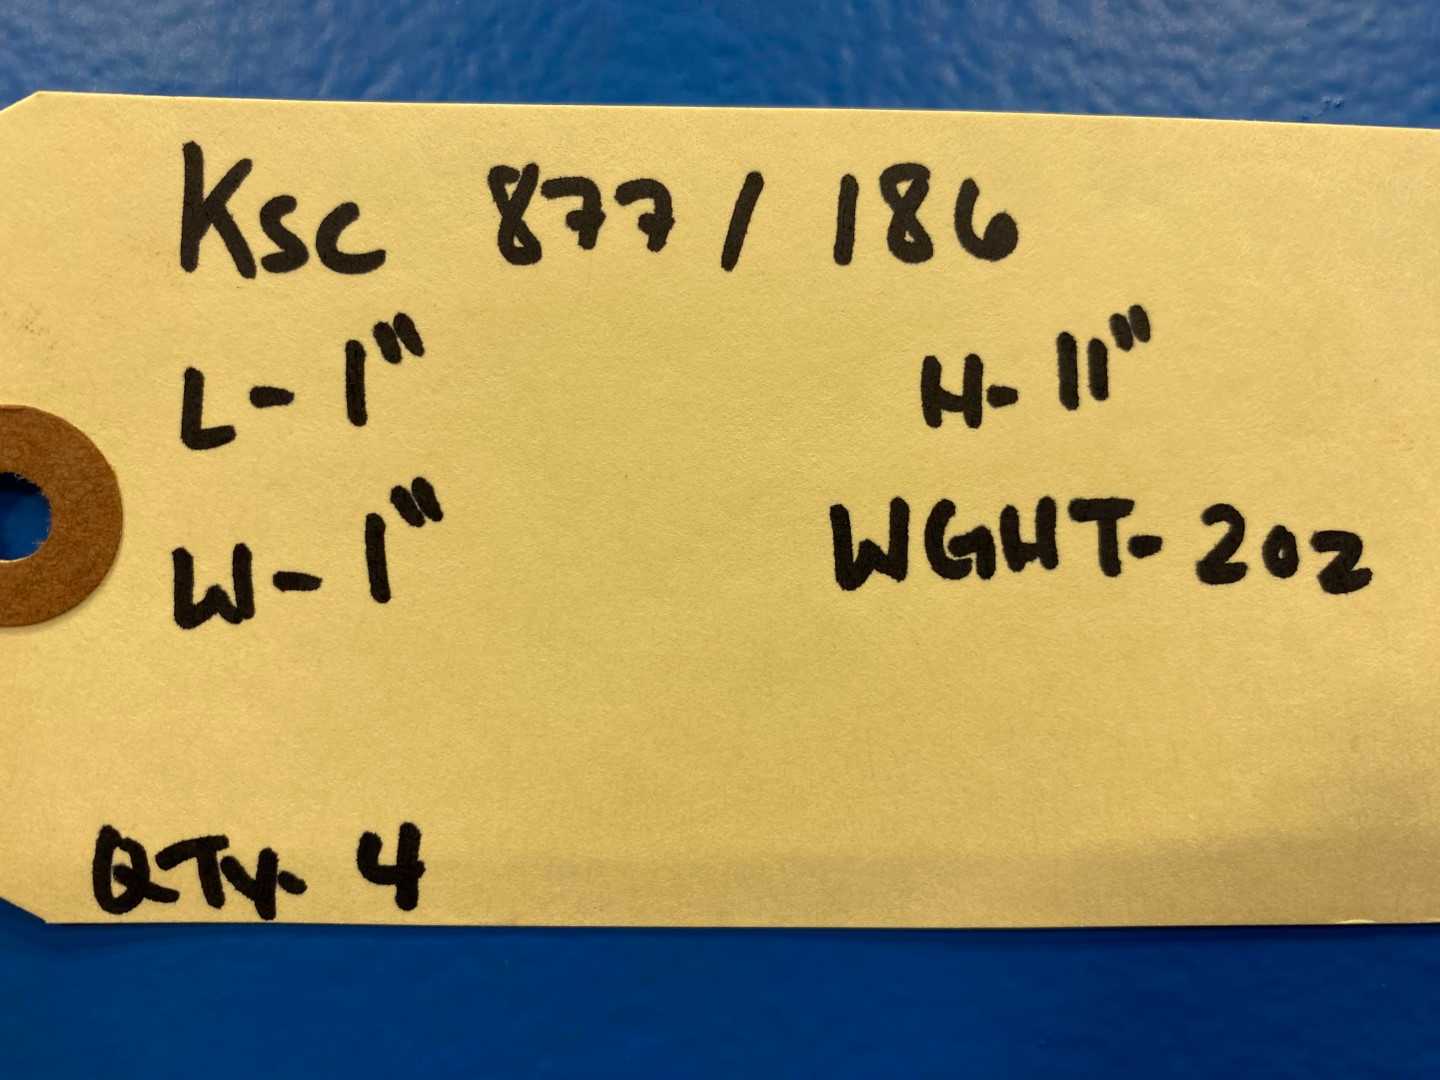 Ksc 877/186
L-1" H-11"
W-1" WGHT-2oz
QTy. 4